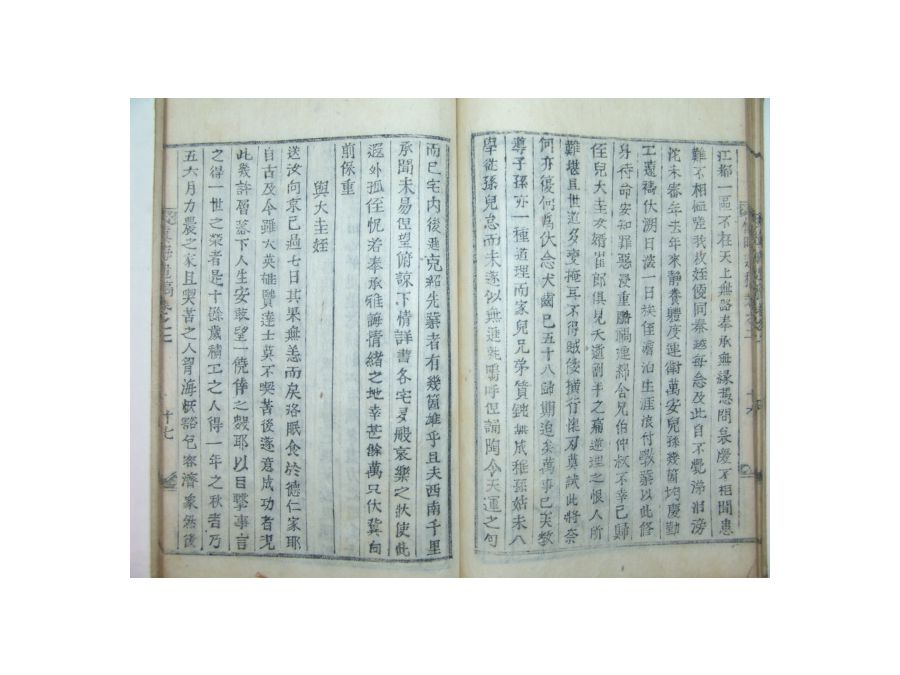 江都一區不在天上無路奉承無緣憑問哀慶不相聞患
難不相恤雖我叔姪便同秦越每念及此自不覺涕泗滂
沱未審年去年來靜養體度連衛萬安兒孫幾箇均慶勤
工遠禱伏溯日深一日族姪 生涯 付 以此
身待命安知罪惡浸重 禍連綿舍兄伯仲叔不幸已歸
侄兒大圭次婿崔郎俱見夭逝割半之痛逆理之恨人所
難堪且世道多變掩耳不得賊倭橫行柴刃莫試此將奈
何亦復何爲伏念犬齒已五十八歸期迫矣萬事已矣教
導子孫亦一種道理而家兒兄弟質鈍無成稚孫姑未入
學從孫兒怠而未遂似無進 嗚呼但誦陶令天運之句
而已宅內後進克紹先業者有幾箇雄乎且夫西南千里
承聞未易但望俯諒下情詳書各宅 哀樂之狀使此
遐外孤侄怳若奉承雅誨情緒之地幸甚餘萬只伏冀向
前保重
與大圭姪
送汝向京已過七日其果無恙而矣洛眠食於德仁家耶
自古及今雖大英雄賢達士莫不喫苦後遂意成功者況
此幾許層落下人生安敢望一僥倖之幾耶以目擊事言
之得一世之榮者是十餘歲積工之人得一年之秋者乃
五六月力農之家且喫苦之人胃海恢豁包容濟衆然後
十七